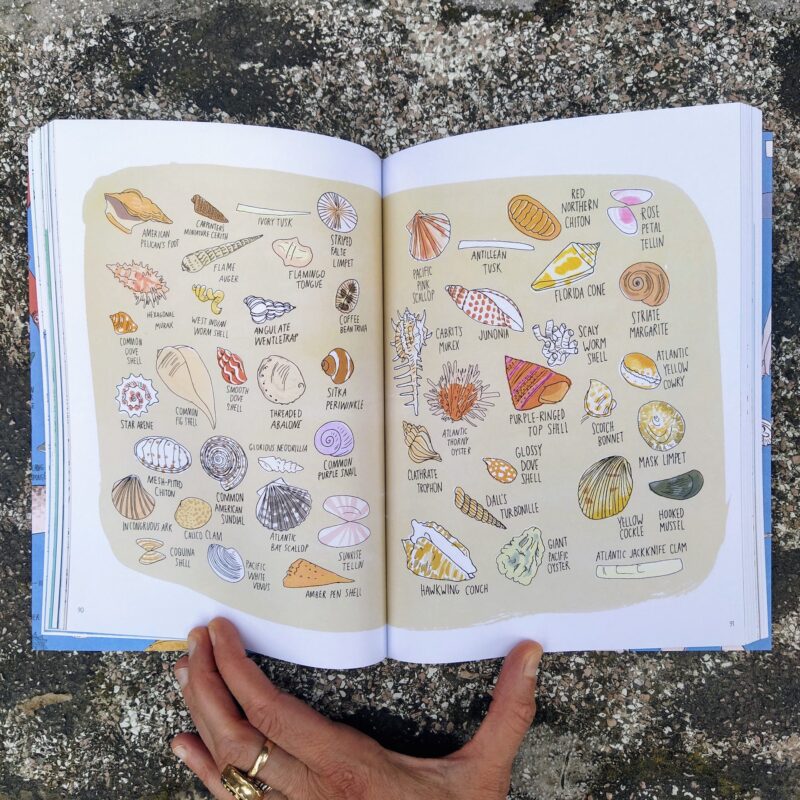 AMERICAN
PELICAN'S FOOT
CARPENTER'S
MINIATURE CERITH
IVORY TUSK
STRIPED
FALSE
LIMPET
FLAME
AUGER
FLAMINGO
TONGUE
HEXAGONAL
MUREX
WEST INDIAN
WORM SHELL
ANGULATE
WENTLETRAP
COFFEE
BEAN TRIVIA
COMMON
DOVE
SHELL
STAR ARENE
COMMON
FIG SHELL
SMOOTH
DOVE
SHELL
THREADED
ABALONE
SITKA
PERIWINKLE
MESH-PITTED
CHITON
COMMON
AMERICAN
SUNDIAL
GLORIOUS NEODRILLIA
COMMON
PURPLE SNAIL
INCONGRUOUS ARK
CALICO CLAM
ATLANTIC
BAY SCALLOP
SUNRISE
TELLIN
COQUINA
SHELL
PACIFIC
WHITE
VENUS
AMBER PEN SHELL
90
PACIFIC
PINK
SCALLOP
ANTILLEAN
TUSK
RED
NORTHERN
CHITON
ROSE
PETAL
TELLIN
FLORIDA CONE
STRIATE
MARGARITE
CABRIT'S
MUREX
JUNONIA
SCALY
WORM
SHELL
ATLANTIC
YELLOW
COWRY
ATLANTIC
THORNY
OYSTER
PURPLE-RINGED
TOP SHELL
SCOTCH
BONNET
MASK LIMPET
CLATHRATE
TROPHON
GLOSSY
DOVE
SHELL
DALL'S
TURBONILLE
YELLOW
COCKLE
HOOKED
MUSSEL
HAWKWING CONCH
GIANT
PACIFIC
OYSTER
ATLANTIC JACKKNIFE CLAM
91